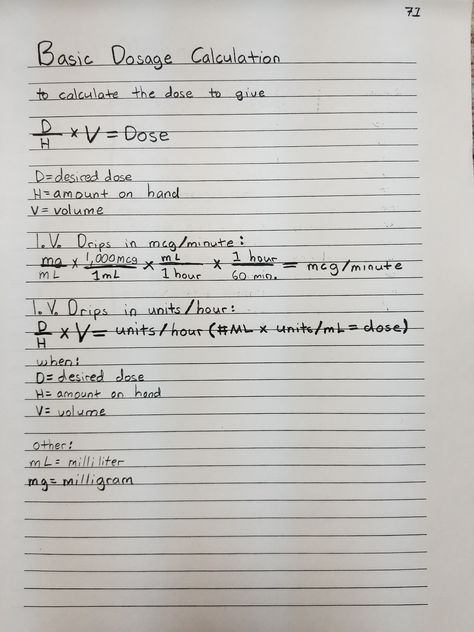 71
Basic Dosage Calculation
to calculate the dose to give
D/H × V = Dose
D=desired dose
H=amount on hand
V=volume
I.V. Drips in mcg/minute:
mg/mL × 1,000mcg/1mL × mL/1 hour × 1 hour/60 min. = mcg/minute
I.V. Drips in units/hour:
D/H × V = units/hour (#ML × units/mL = dose)
when:
D=desired dose
H=amount on hand
V=volume
other:
mL=milliliter
mg=milligram